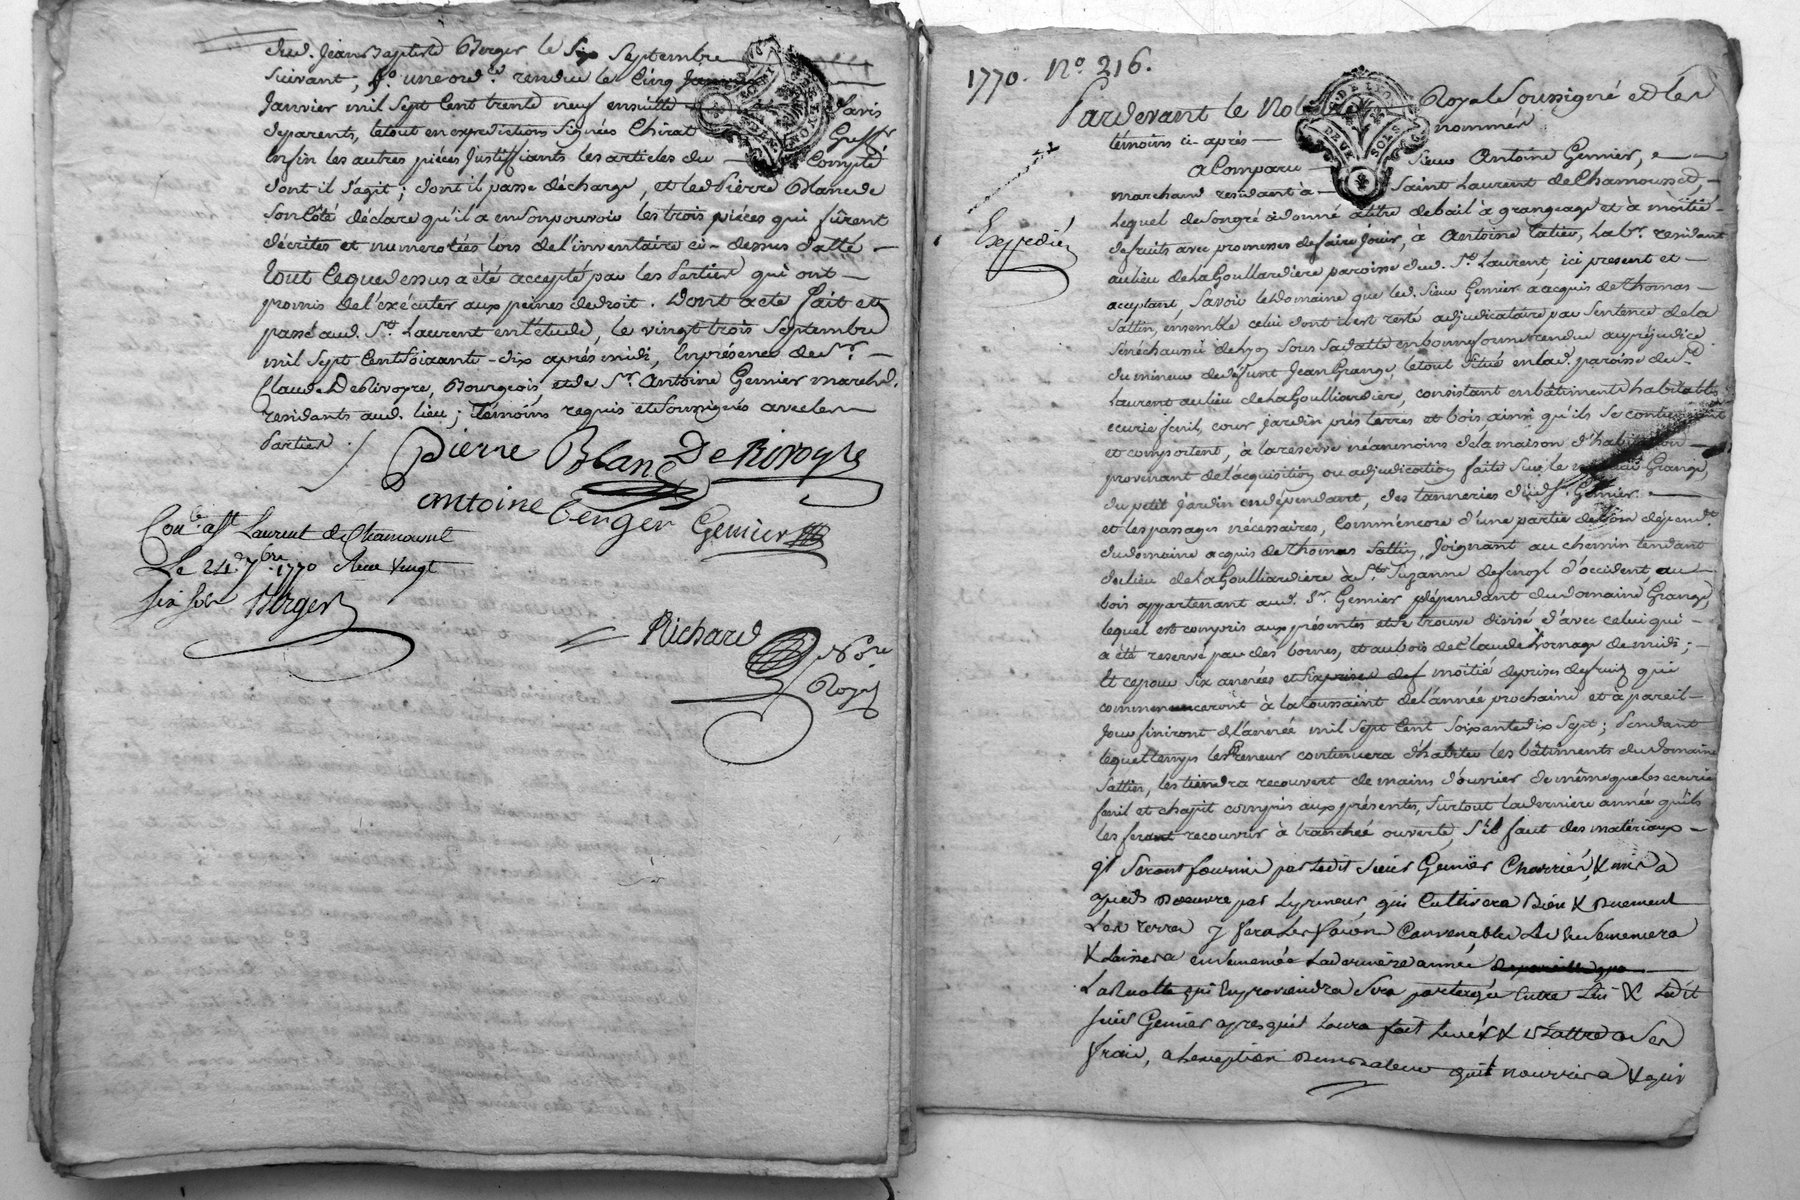 dud. Jean Baptiste Berger le six Septembre
suivant, 8.o une ord.ce rendue le Cinq
Janvier mil sept Cent trente neuf ensuitte d'avis
de parents, le tout en expeditions signées Chirat Greff.r
enfin les autres pièces Justiffiants les articles du Compte
dont il s'agit; dont il passe décharge, et led. Pierre Blanc de
son Côté déclare qu'il a en son pouvoir les trois pièces qui fûrent
décrites et numerotées lors de l'inventaire ci-dessus datté
tout Ceque dessus a été accepté par les Parties qui ont
promis de l'exécuter aux peines de droit. Dont acte fait et
passé aud. S.t Laurent en l'étude, le vingt trois Septembre
mil sept Cent soixante-dix après midi, En présence de S.r
Claude De Rivoyre, Bourgeois, et de S.r Antoine Gemier march.d
residants aud. lieu; témoins requis et soussignés avec les
Parties ./
Pierre Blanc De Rivoyre
antoine berger Gemier
Con.lé a S.t Laurent de Chamousset
Le 24. 7.bre 1770 Reçu vingt
six sols Berger
Richard No.re
Royal
1770. N.o 216.
Pardevant le Notaire Royal soussigné et les
témoins ci-après nommés
a Comparu sieur Antoine Gemier,
marchand residant à Saint Laurent de Chamousset,
Lequel de son gré a donné à titre de bail à grangeage et à moitié
de fruits avec promesses de faire Jouir, à Antoine Latieu, Lab.r residant
au lieu de la Goulliardiere paroisse dud. S.t Laurent, ici present et
acceptant, savoir le Domaine que led. sieur Gemier a acquis de thomas
Sattin, ensemble celui dont il est resté adjudicataire par sentence de la
Sénéchaussée de Lyon sous sa datte en bonne forme rendue au préjudice
du mineur de deffunt Jean Grange, le tout situé en lad. paroisse de S.t
Laurent au lieu de la Goulliardiere, consistant en bâtiments habitables
ecurie fenil, cour jardin prés terres et bois, ainsi qu'ils se contiennent
et comportent, à la réserve néanmoins de la maison d'habitation
provenant de l'acquisition ou adjudication faite sur le mineur Grange,
du petit jardin en dépendant, des tanneries dud. S.r Gemier
et les passages nécessaires, Comm'encore d'une partie de bois dépend.t
du domaine acquis de thomas Sattin, Joignant au chemin tendant
du lieu de la Goulliardiere à S.te Suzanne d'occident, au
bois appartenant aud. S.r Gemier dépendant du domaine Grange,
lequel est compris aux présentes et se trouve divisé d'avec celui qui
a été reservé par des bornes, et au bois de Claude de midi;
Et ce pour six années et six prises de moitié de prises de fruits qui
commenceront à la toussaint de l'année prochaine et à pareil
Jour finiront de l'année mil sept Cent soixante dix sept; Pendant
lequel temps le Preneur continuera d'habiter les bâtiments du domaine
Sattin, les tiendra recouvert de mains d'ouvrier de même que les ecurie
fenil et chapit compris aux présentes, surtout la derniere année qu'il
les fera recouvrir à tranchée ouverte, s'il faut des matériaux
ils seront fournis par ledit sieur Gemier Charriés, & mis a
pied d'oeuvre par Le preneur, qui Cultivera Bien & duement
Les terres y fera Les façons Convenables Les Ensemencera
& Laissera ensemencée La derniere année
La Recolte qui En proviendra sera partagée Entre Lui & Ledit
sieur Gemier apres qu'il L'aura fait Lever & Battre a ses
frais, a L'exception d'un Bateur qu'il nourrira & qui
Expedié
DEUX SOLS